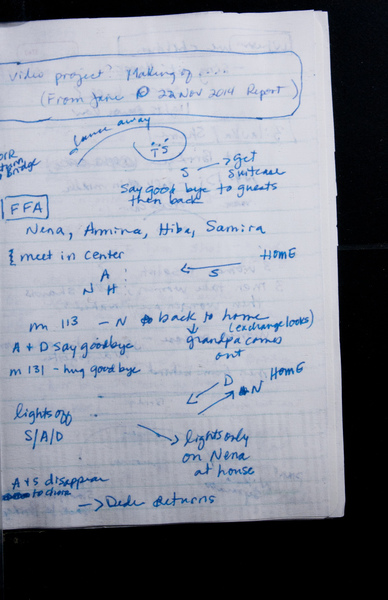 video project? Making of ....
(From June @ 22 Nov 2014 Report)
dance away
T S
Bridge
S → get
suitcase
Say good bye to guests
then back
FFA
Nena, Amina, Hiba, Samira
meet in center
HOME
A
S
N H
m 113 - N back to home
(exchange looks)
A + D say goodbye
grandpa comes
out
m 131 - hug goodbye
D
HOME
N
lights off
S/A/D
lights only
on Nena
at house
A + S disappear
→ Dede returns